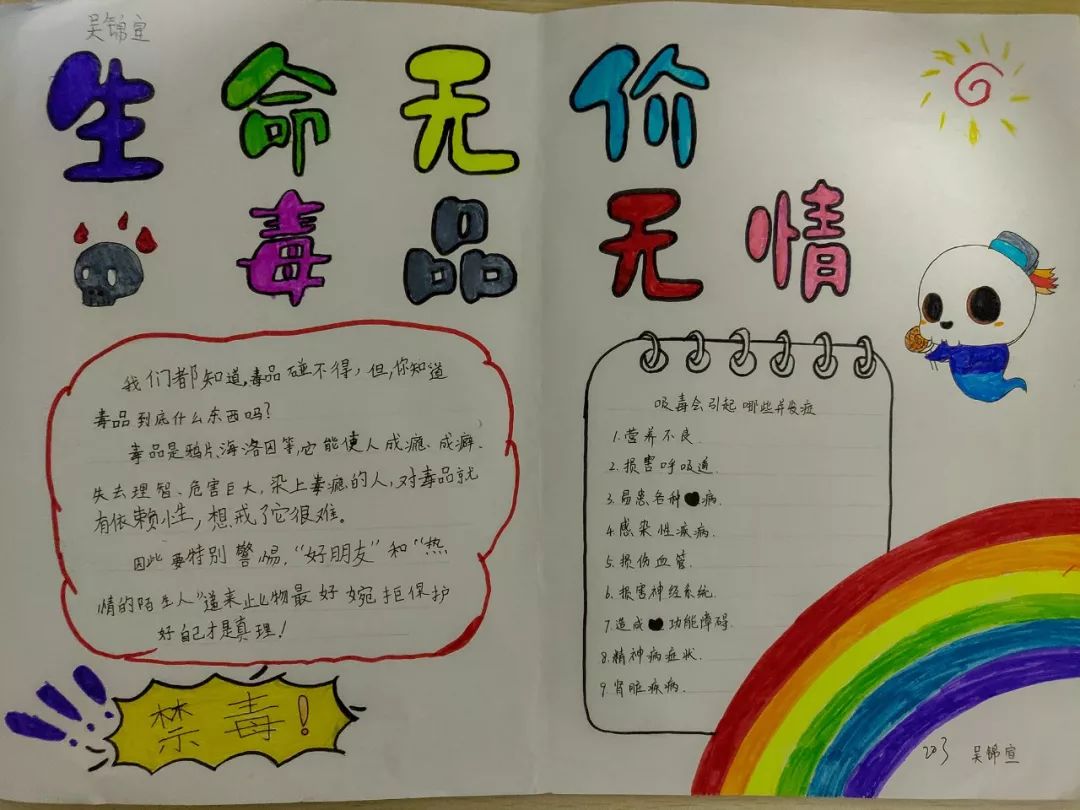 吴锦宣
生命无价
毒品无情
我们都知道,毒品碰不得,但,你知道
毒品到底什么东西吗?
毒品是鸦片、海洛因等,它能使人成瘾.成癖.
失去理智、危害巨大,染上毒瘾的人,对毒品就
有依赖性,想戒了它很难。
因此要特别警惕,“好朋友”和“热
情的陌生人”递来止么物最好婉拒保护
好自己才是真理!
禁毒!
吸毒会引起哪些并发症
1.营养不良.
2.损害呼吸道.
3.易患各种病.
4.感染性疾病.
5.损伤血管.
6.损害神经系统.
7.造成功能障碍.
8.精神病症状.
9.肾脏疾病.
203 吴锦宣